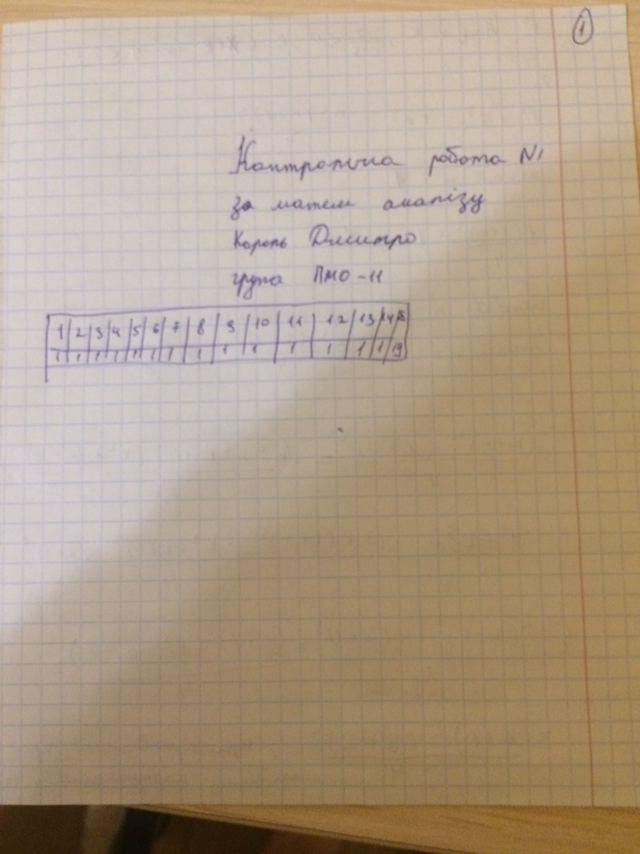 1
Контрольна робота №1
за матем аналізу
Король Дмитро
група ПМО-11
1 2 3 4 5 6 7 8 9 10 11 12 13 14
1 1 1 1 1 1 1 1 1 1 1 1 1 1